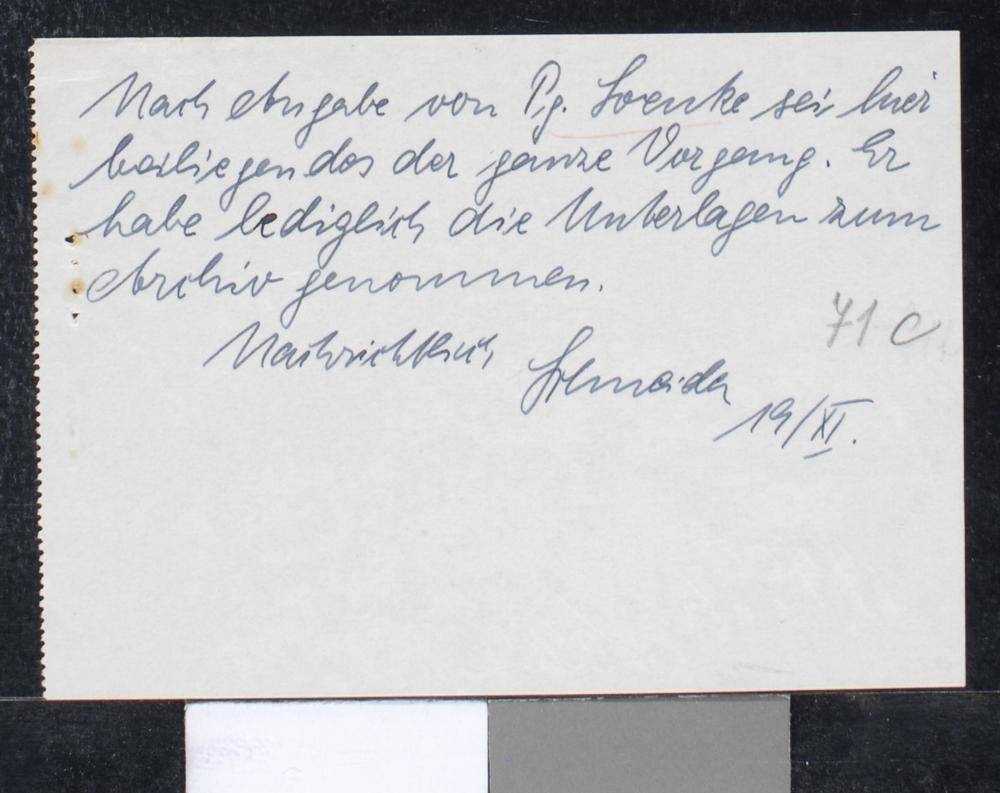 Nach Angabe von Pg. Loenke sei hier
beiliegendes der ganze Vorgang. Er
habe lediglich die Unterlagen zum
Archiv genommen.
71 c
Nachrichtlich Schneider
19/XI.